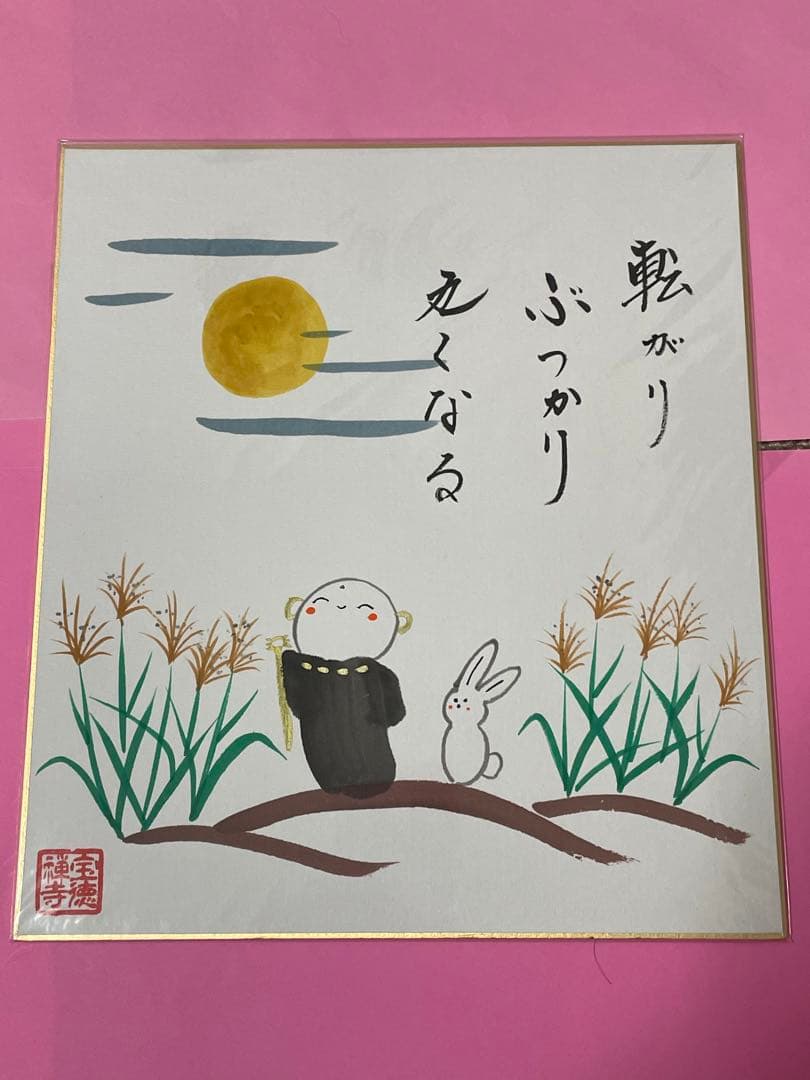 転がり
ぶつかり
丸くなる
宝徳
禅寺